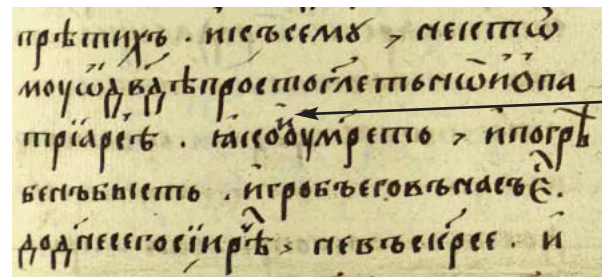 прѣтихъ . икъсему , нектѡ
моуѡдв҃дѣпростогл҃етьнѡиѡпа
трїарсѣ . ꙗкоиобумретъ , ипогрѣ
бенъбысть . игробъеговънасъе҃ .
додн҃есегосїирⷱ҇ѣ , невъскрсе . и